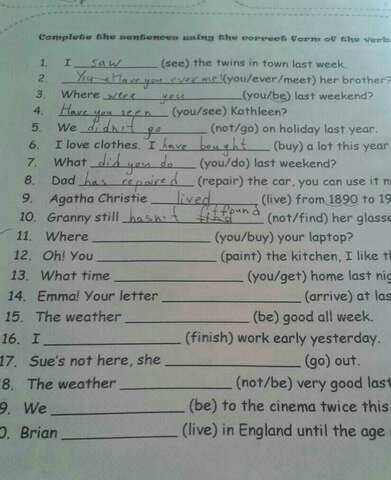 Complete the sentences using the correct form of the verbs
1. I saw (see) the twins in town last week.
2. Have you ever met (you/ever/meet) her brother?
3. Where were you (you/be) last weekend?
4. Have you seen (you/see) Kathleen?
5. We didn't go (not/go) on holiday last year.
6. I love clothes. I have bought (buy) a lot this year
7. What did you do (you/do) last weekend?
8. Dad has repaired (repair) the car, you can use it n
9. Agatha Christie lived (live) from 1890 to 19
10. Granny still hasn't found (not/find) her glasse
11. Where (you/buy) your laptop?
12. Oh! You (paint) the kitchen, I like th
13. What time (you/get) home last nig
14. Emma! Your letter (arrive) at las
15. The weather (be) good all week.
16. I (finish) work early yesterday.
17. Sue's not here, she (go) out.
8. The weather (not/be) very good last
9. We (be) to the cinema twice this
0. Brian (live) in England until the age